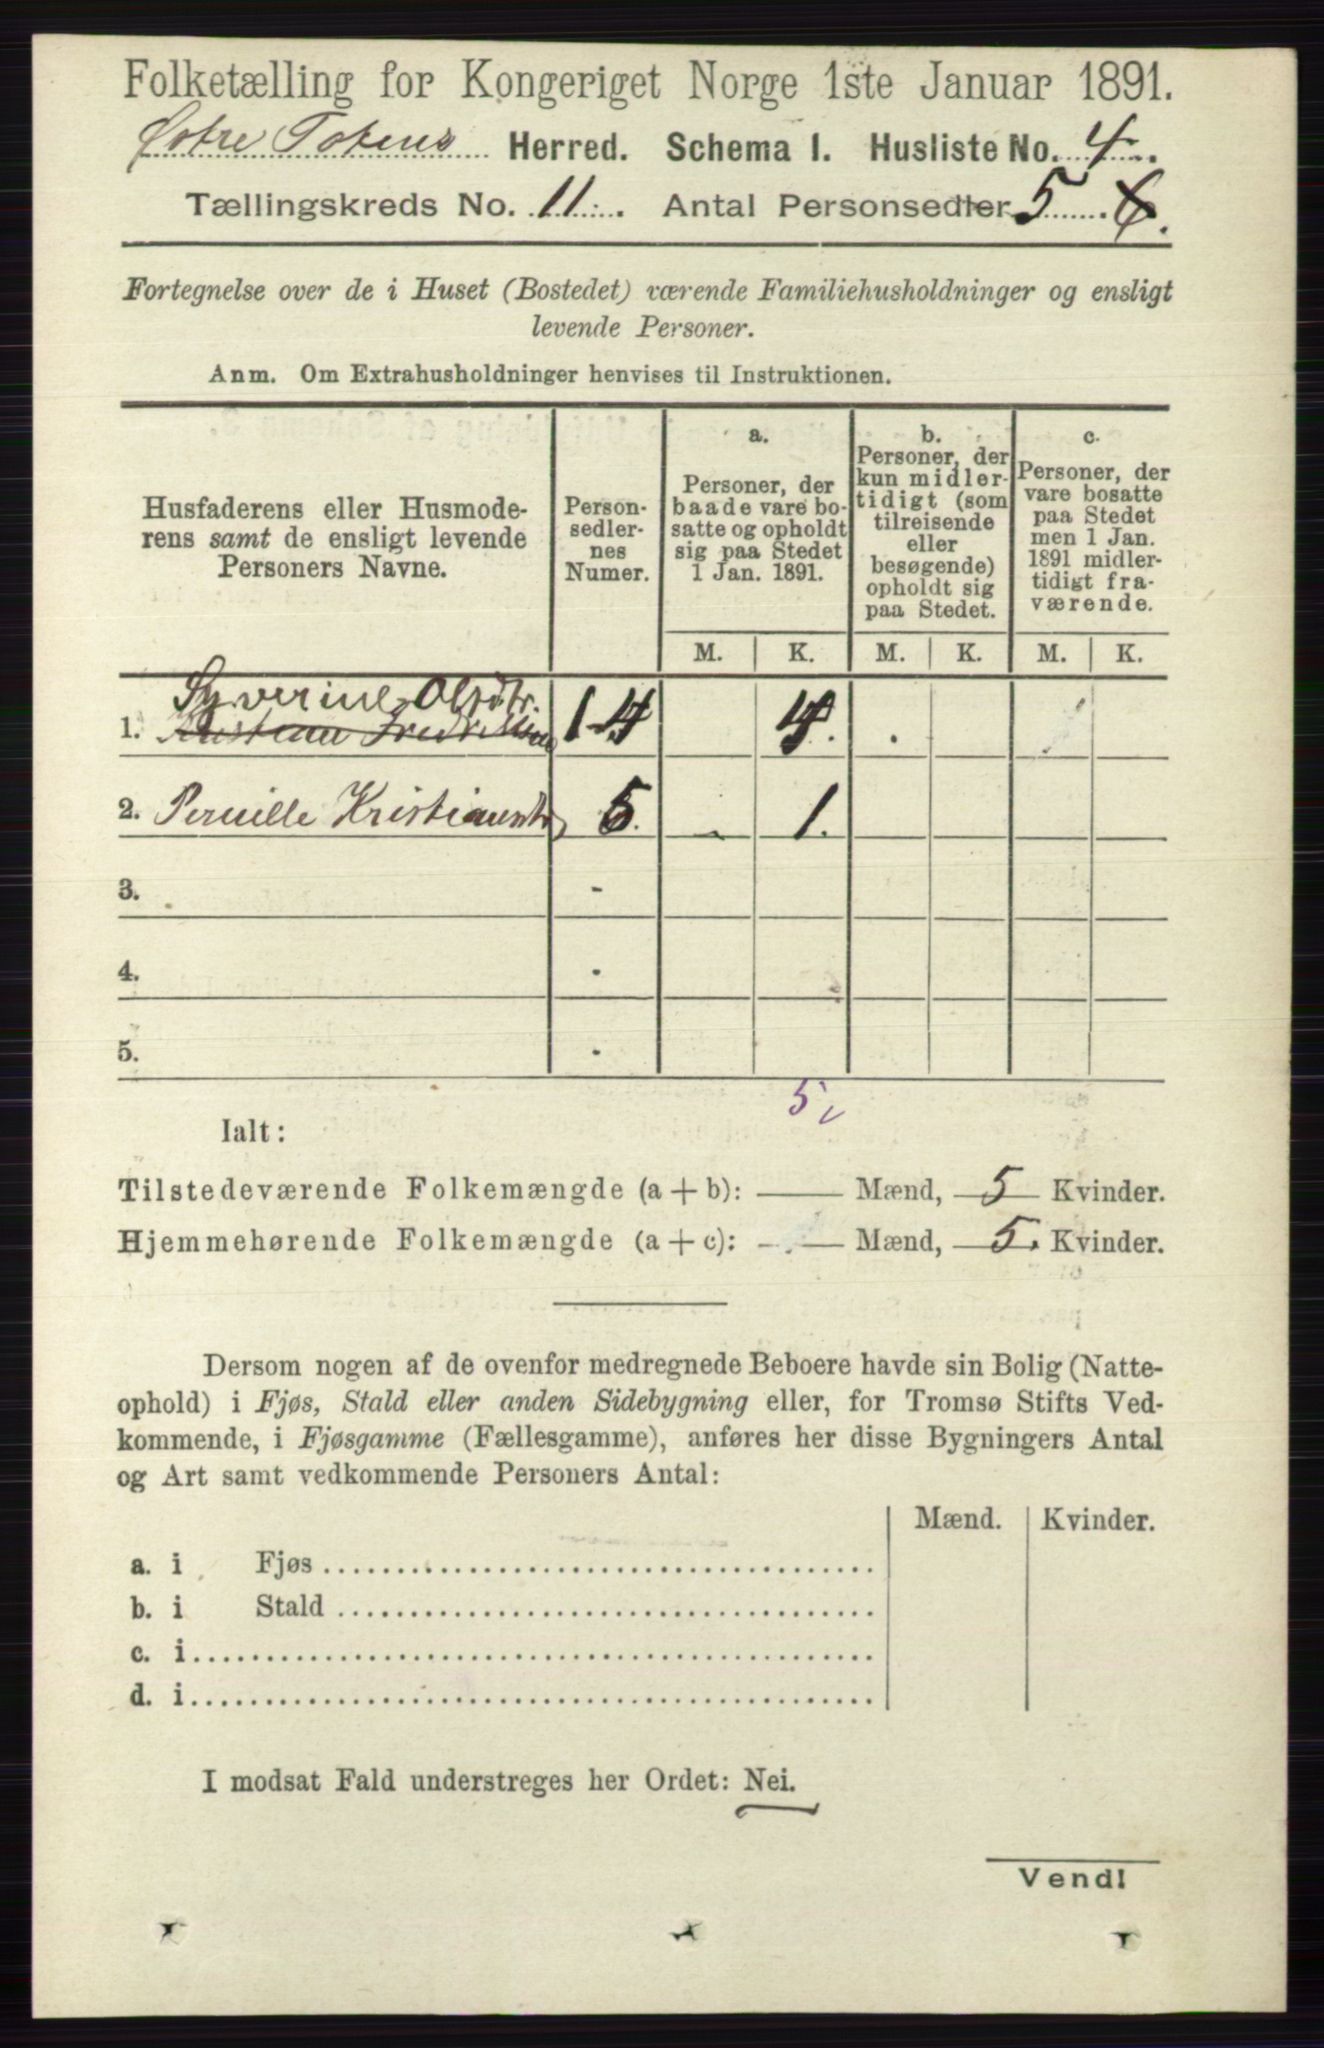 Folketælling for Kongeriget Norge 1ste Januar 1891.
Østre Totens Herred. Schema I. Husliste No. 4.
Tællingskreds No. 11. Antal Personsedler 5 6.
Fortegnelse over de i Huset (Bostedet) værende Familiehusholdninger og ensligt
levende Personer.
Anm. Om Extrahusholdninger henvises til Instruktionen.
Husfaderens eller Husmode-
rens samt de ensligt levende
Personers Navne.
Person-
sedler-
nes
Numer.
a.
Personer, der
baade vare bo-
satte og opholdt
sig paa Stedet
1 Jan. 1891.
b.
Personer, der
kun midler-
tidigt (som
tilreisende
eller
besøgende)
opholdt sig
paa Stedet.
c.
Personer, der
vare bosatte
paa Stedet
men 1 Jan.
1891 midler-
tidigt fra-
værende.
M. K. M. K. M. K.
Syverine Olsdtr.
1. 1-4 4.
2. Pernille Kristiansdtr 5. 1.
3. -
4.
5.
5
Ialt:
Tilstedeværende Folkemængde (a + b): — Mænd, 5 Kvinder.
Hjemmehørende Folkemængde (a + c): — Mænd, 5. Kvinder.
Dersom nogen af de ovenfor medregnede Beboere havde sin Bolig (Natte-
ophold) i Fjøs, Stald eller anden Sidebygning eller, for Tromsø Stifts Ved-
kommende, i Fjøsgamme (Fællesgamme), anføres her disse Bygningers Antal
og Art samt vedkommende Personers Antal:
Mænd. Kvinder.
a. i Fjøs
b. i Stald
c. i
d. i
I modsat Fald understreges her Ordet: Nei.
Vend!